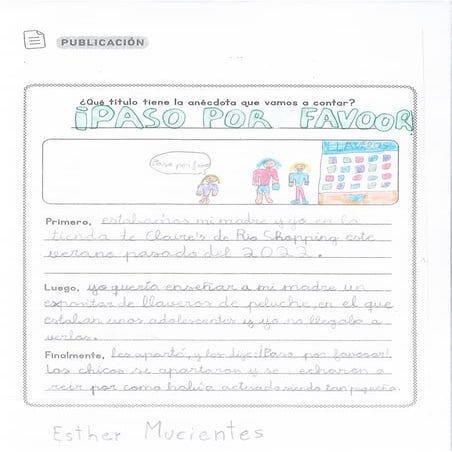 PUBLICACIÓN
¿Qué título tiene la anécdota que vamos a contar?
¡PASO POR FAVOOR
Paso por favo
LLAVEROS
Primero, estabamos mi madre y yo en la
tienda de Claire's de Rio Shopping este
verano pasado del 2022.
Luego, yo quería enseñar a mi madre un
expositor de llaveros de peluche, en el que
estaban unos adolescentes y yo no llegaba a
verlos.
Finalmente, les aparté, y les dije: ¡Paso por favooor!.
Los chicos se apartaron y se echaron a
reir por como había actuado siendo tan pequeña.
Esther Mucientes